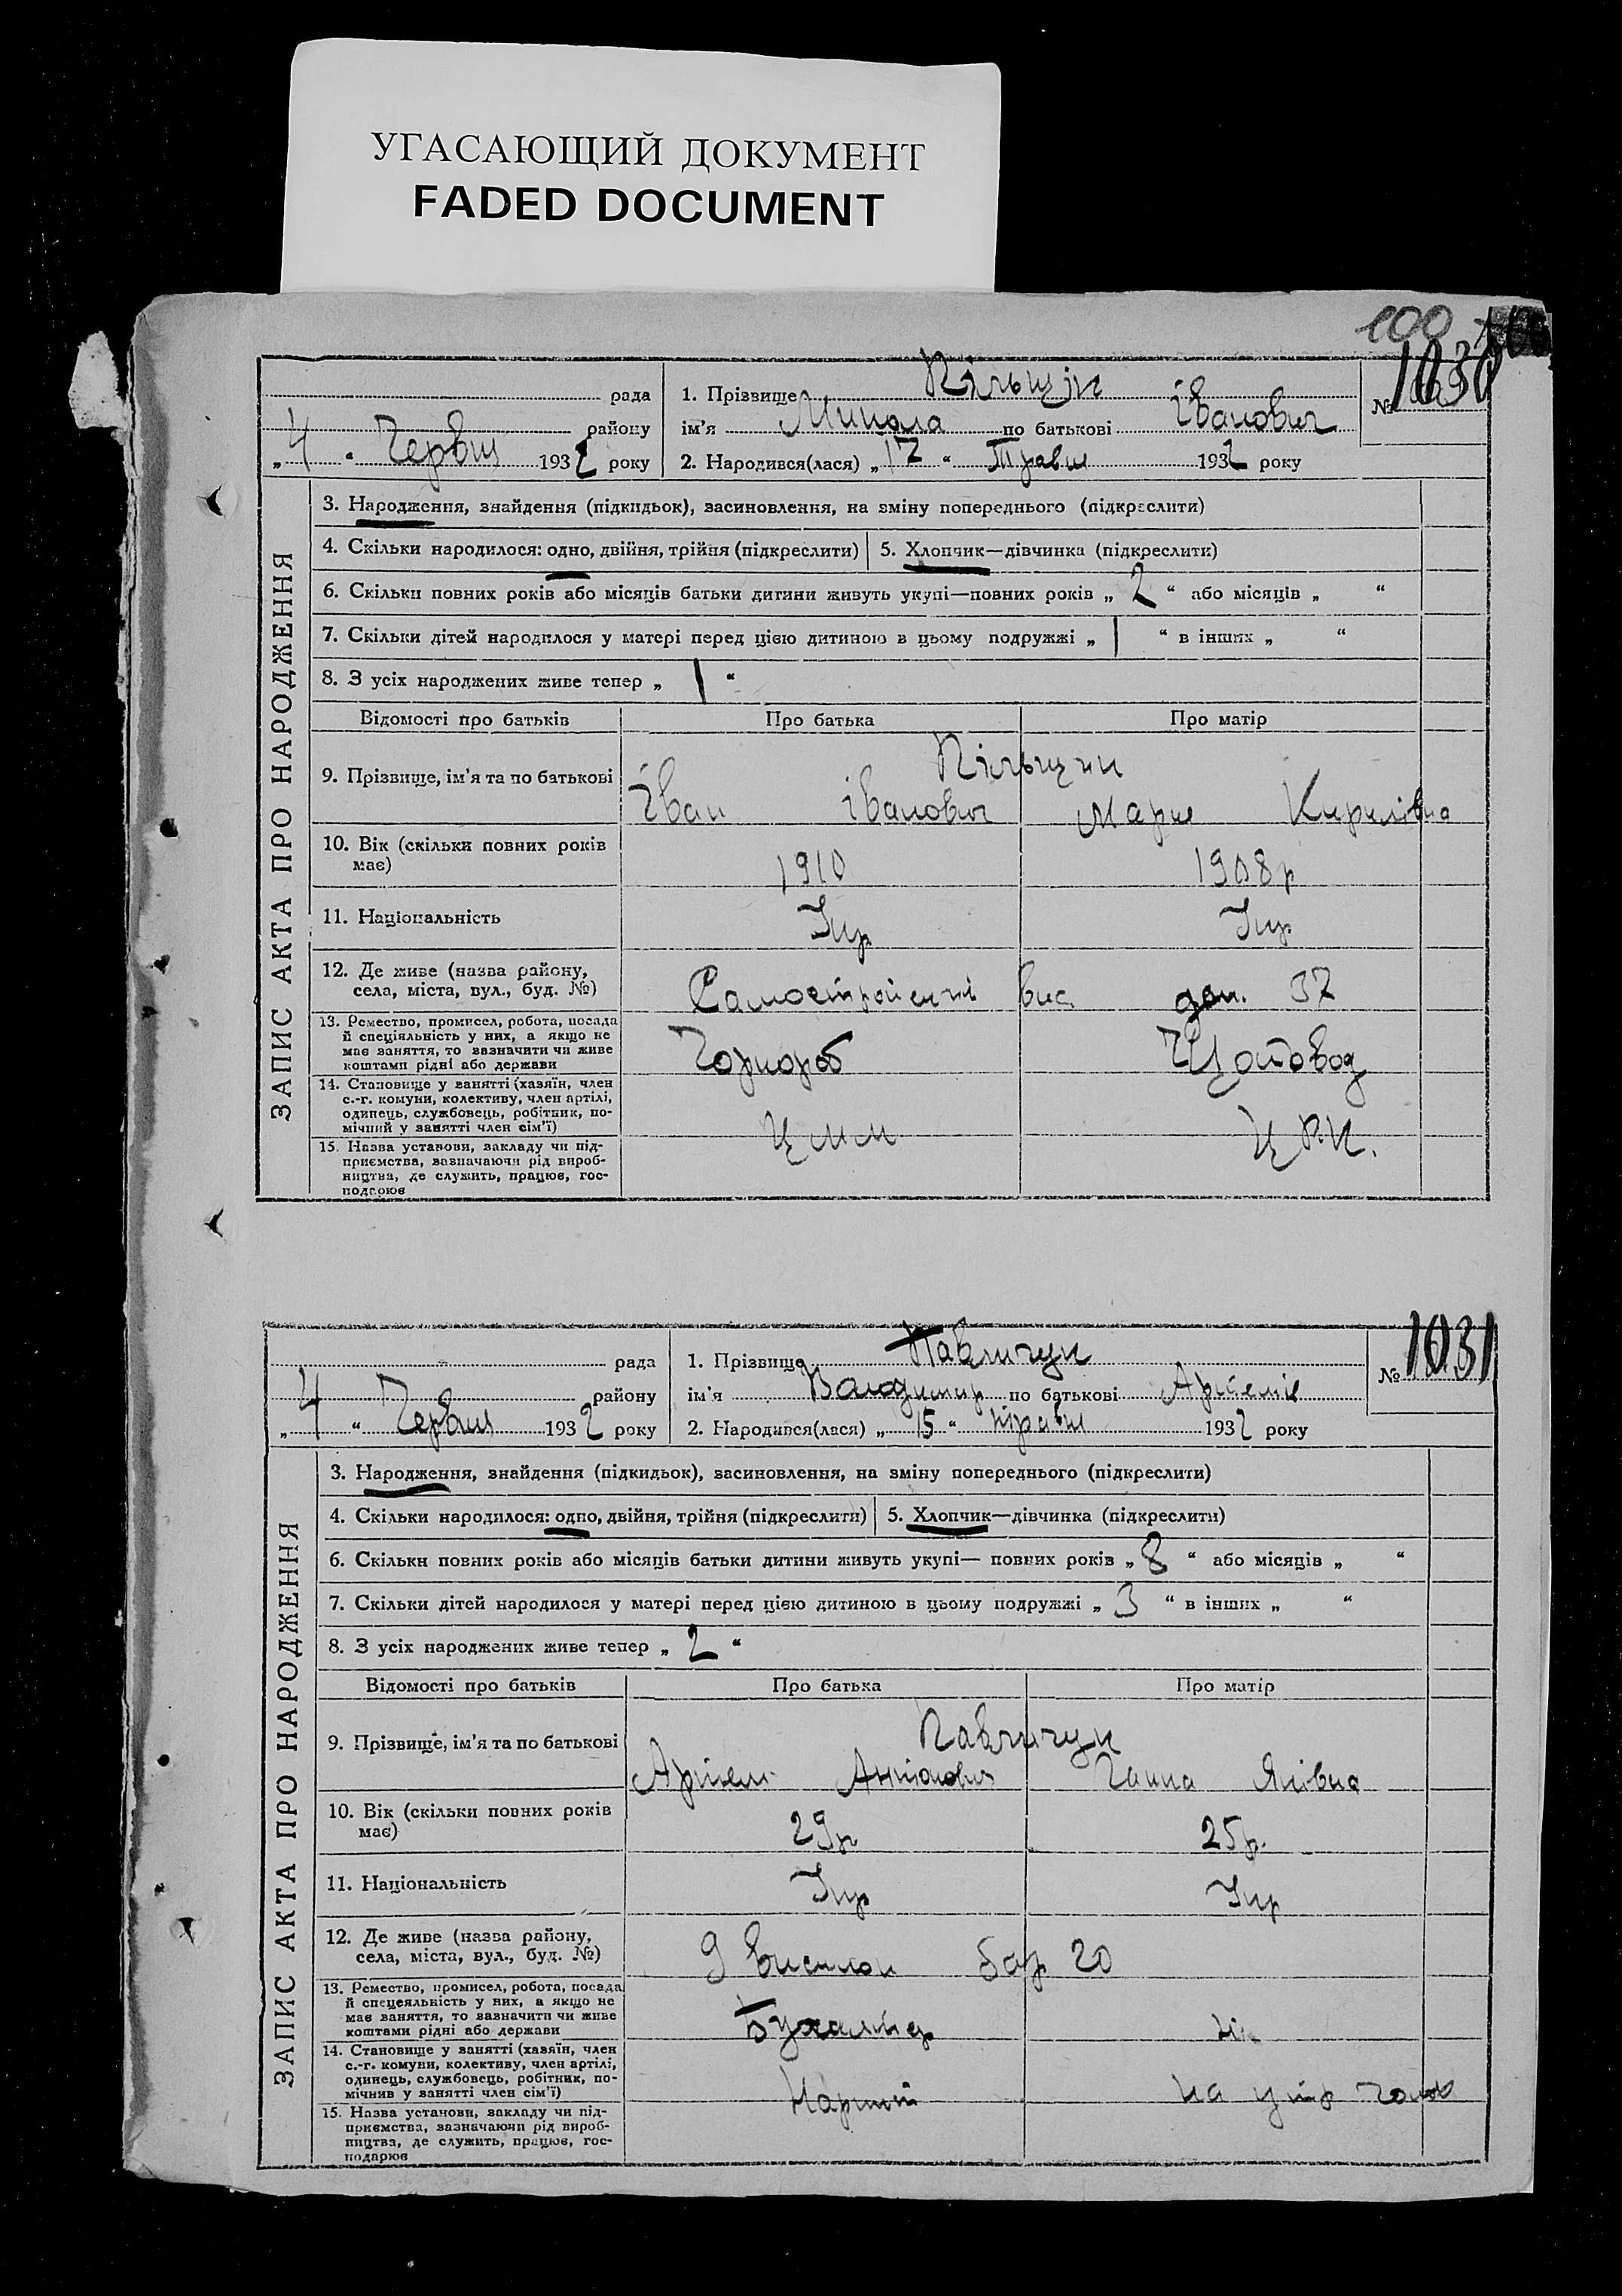 УГАСАЮЩИЙ ДОКУМЕНТ
FADED DOCUMENT
100
ЗАПИС АКТА ПРО НАРОДЖЕННЯ
рада
району
„ 4 “ Червня 1932 року
1. Прізвище
ім'я Микола по батькові Іванович
2. Народився(лася) „ 17 “ Травня 1932 року
№ 1030
3. Народження, знайдення (підкидьок), засиновлення, на зміну попереднього (підкреслити)
4. Скільки народилося: одно, двійня, трійня (підкреслити)
5. Хлопчик—дівчинка (підкреслити)
6. Скільки повних років або місяців батьки дитини живуть укупі—повних років „ 2 “ або місяців „ “
7. Скільки дітей народилося у матері перед цією дитиною в цьому подружжі „ 1 “ в інших „ “
8. З усіх народжених живе тепер „ 1 “
Відомості про батьків Про батька Про матір
9. Прізвище, ім'я та по батькові
Іван Іванович Марія Кирилівна
10. Вік (скільки повних років
має)
1910 1908р
11. Національність Укр Укр
12. Де живе (назва району,
села, міста, вул., буд. №)
вис. 37
13. Ремество, промисел, робота, посада
й спеціяльність у них, а якщо не
має заняття, то зазначити чи живе
коштами рідні або держави
Чорнороб Щотовод
14. Становище у занятті (хазяїн, член
с.-г. комуни, колективу, член артілі,
одинець, службовець, робітник, по-
мічний у занятті член сім'ї)
15. Назва установи, закладу чи під-
приємства, зазначаючи рід вироб-
ництва, де служить, працює, гос-
подарює
Ц.Р.К.
ЗАПИС АКТА ПРО НАРОДЖЕННЯ
рада
району
„ 4 “ Червня 1932 року
1. Прізвище Павличук
ім'я Володимир по батькові
2. Народився(лася) „ 15 “ травня 1932 року
№ 1031
3. Народження, знайдення (підкидьок), засиновлення, на зміну попереднього (підкреслити)
4. Скільки народилося: одно, двійня, трійня (підкреслити)
5. Хлопчик—дівчинка (підкреслити)
6. Скільки повних років або місяців батьки дитини живуть укупі— повних років „ 8 “ або місяців „ “
7. Скільки дітей народилося у матері перед цією дитиною в цьому подружжі „ 3 “ в інших „ “
8. З усіх народжених живе тепер „ 2 “
Відомості про батьків Про батька Про матір
9. Прізвище, ім'я та по батькові
Павличук
Артем Антонович Ганна Яківна
10. Вік (скільки повних років
має)
29р 25р.
11. Національність Укр Укр
12. Де живе (назва району,
села, міста, вул., буд. №)
9 бар 20
13. Ремество, промисел, робота, посада
й спецеяльність у них, а якщо не
має заняття, то зазначити чи живе
коштами рідні або держави
Бухалтер
14. Становище у занятті (хазяїн, член
с.-г. комуни, колективу, член артілі,
одинець, службовець, робітник, по-
мічнив у занятті член сім'ї)
на утр
15. Назва установи, закладу чи під-
приємства, зазначаючи рід вироб-
ництва, де служить, працює, гос-
подарює